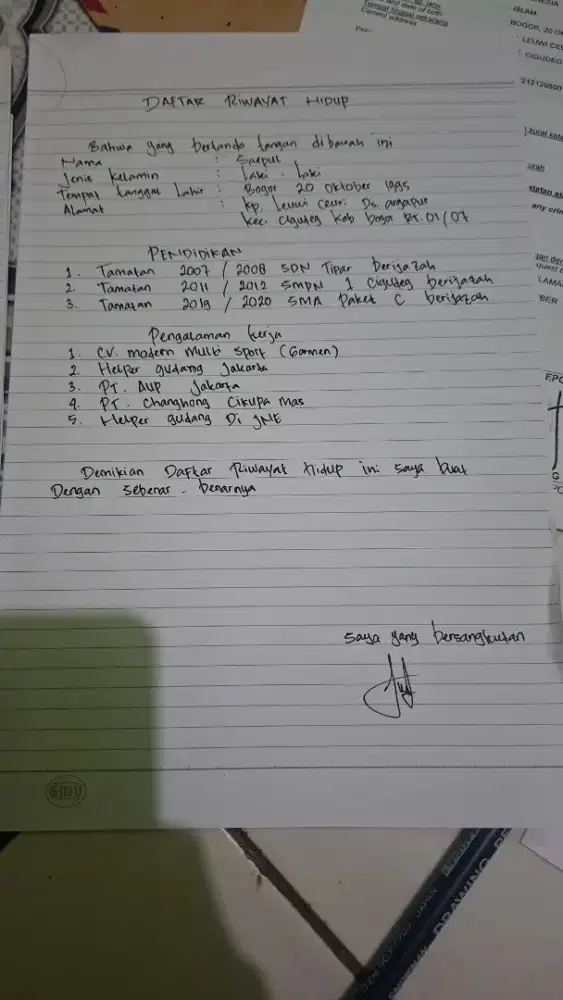 DAFTAR RIWAYAT HIDUP
Bahwa yang bertanda tangan dibawah ini
Nama : Saepul
Jenis Kelamin : Laki - Laki
Tempat tanggal Lahir : Bogor 20 Oktober 1995
Alamat : Kp. Leuwi Ceuri Ds. argapura
kec Cigudeg kab bogor Rt. 01/07
PENDIDIKAN
1. Tamatan 2007 / 2008 SDN Tipar berijazah
2. Tamatan 2011 / 2012 SMPN 1 Cigudeg berijazah
3. Tamatan 2019 / 2020 SMA Paket C berijazah
Pengalaman kerja
1. CV. modern Multi Sport (Garmen)
2. Helper gudang Jakarta
3. PT. AUP Jakarta
4. PT. Changhong Cikupa Mas
5. Helper gudang Di JNE
Demikian Daftar Riwayat Hidup ini saya buat
Dengan sebenar - benarnya
saya yang bersangkutan
SIDU
and date of birth
Tempat tinggal sekarang
Current address
ISLAM
BOGOR, 20
LEUWI
CIGUDEG
any
LAMA
BER
JAPAN
DRAWING